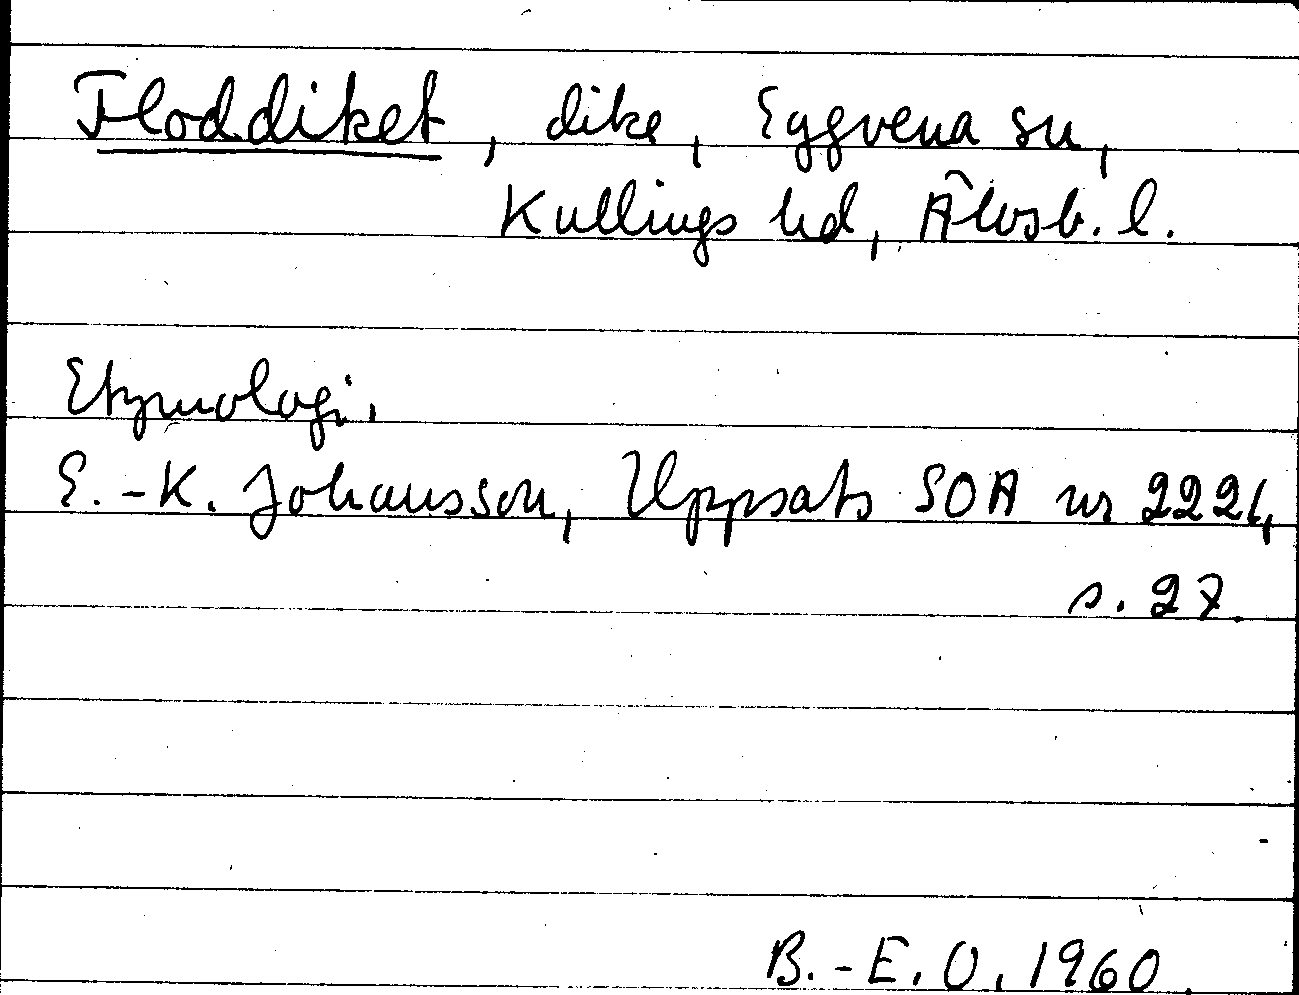 Floddiket, dike, Eggvena sn,
Kullings hd, Älvsb. l.
Etymologi.
E.-K. Johansson, Uppsats SOA nr 2221,
s. 27.
B.-E. O. 1960.